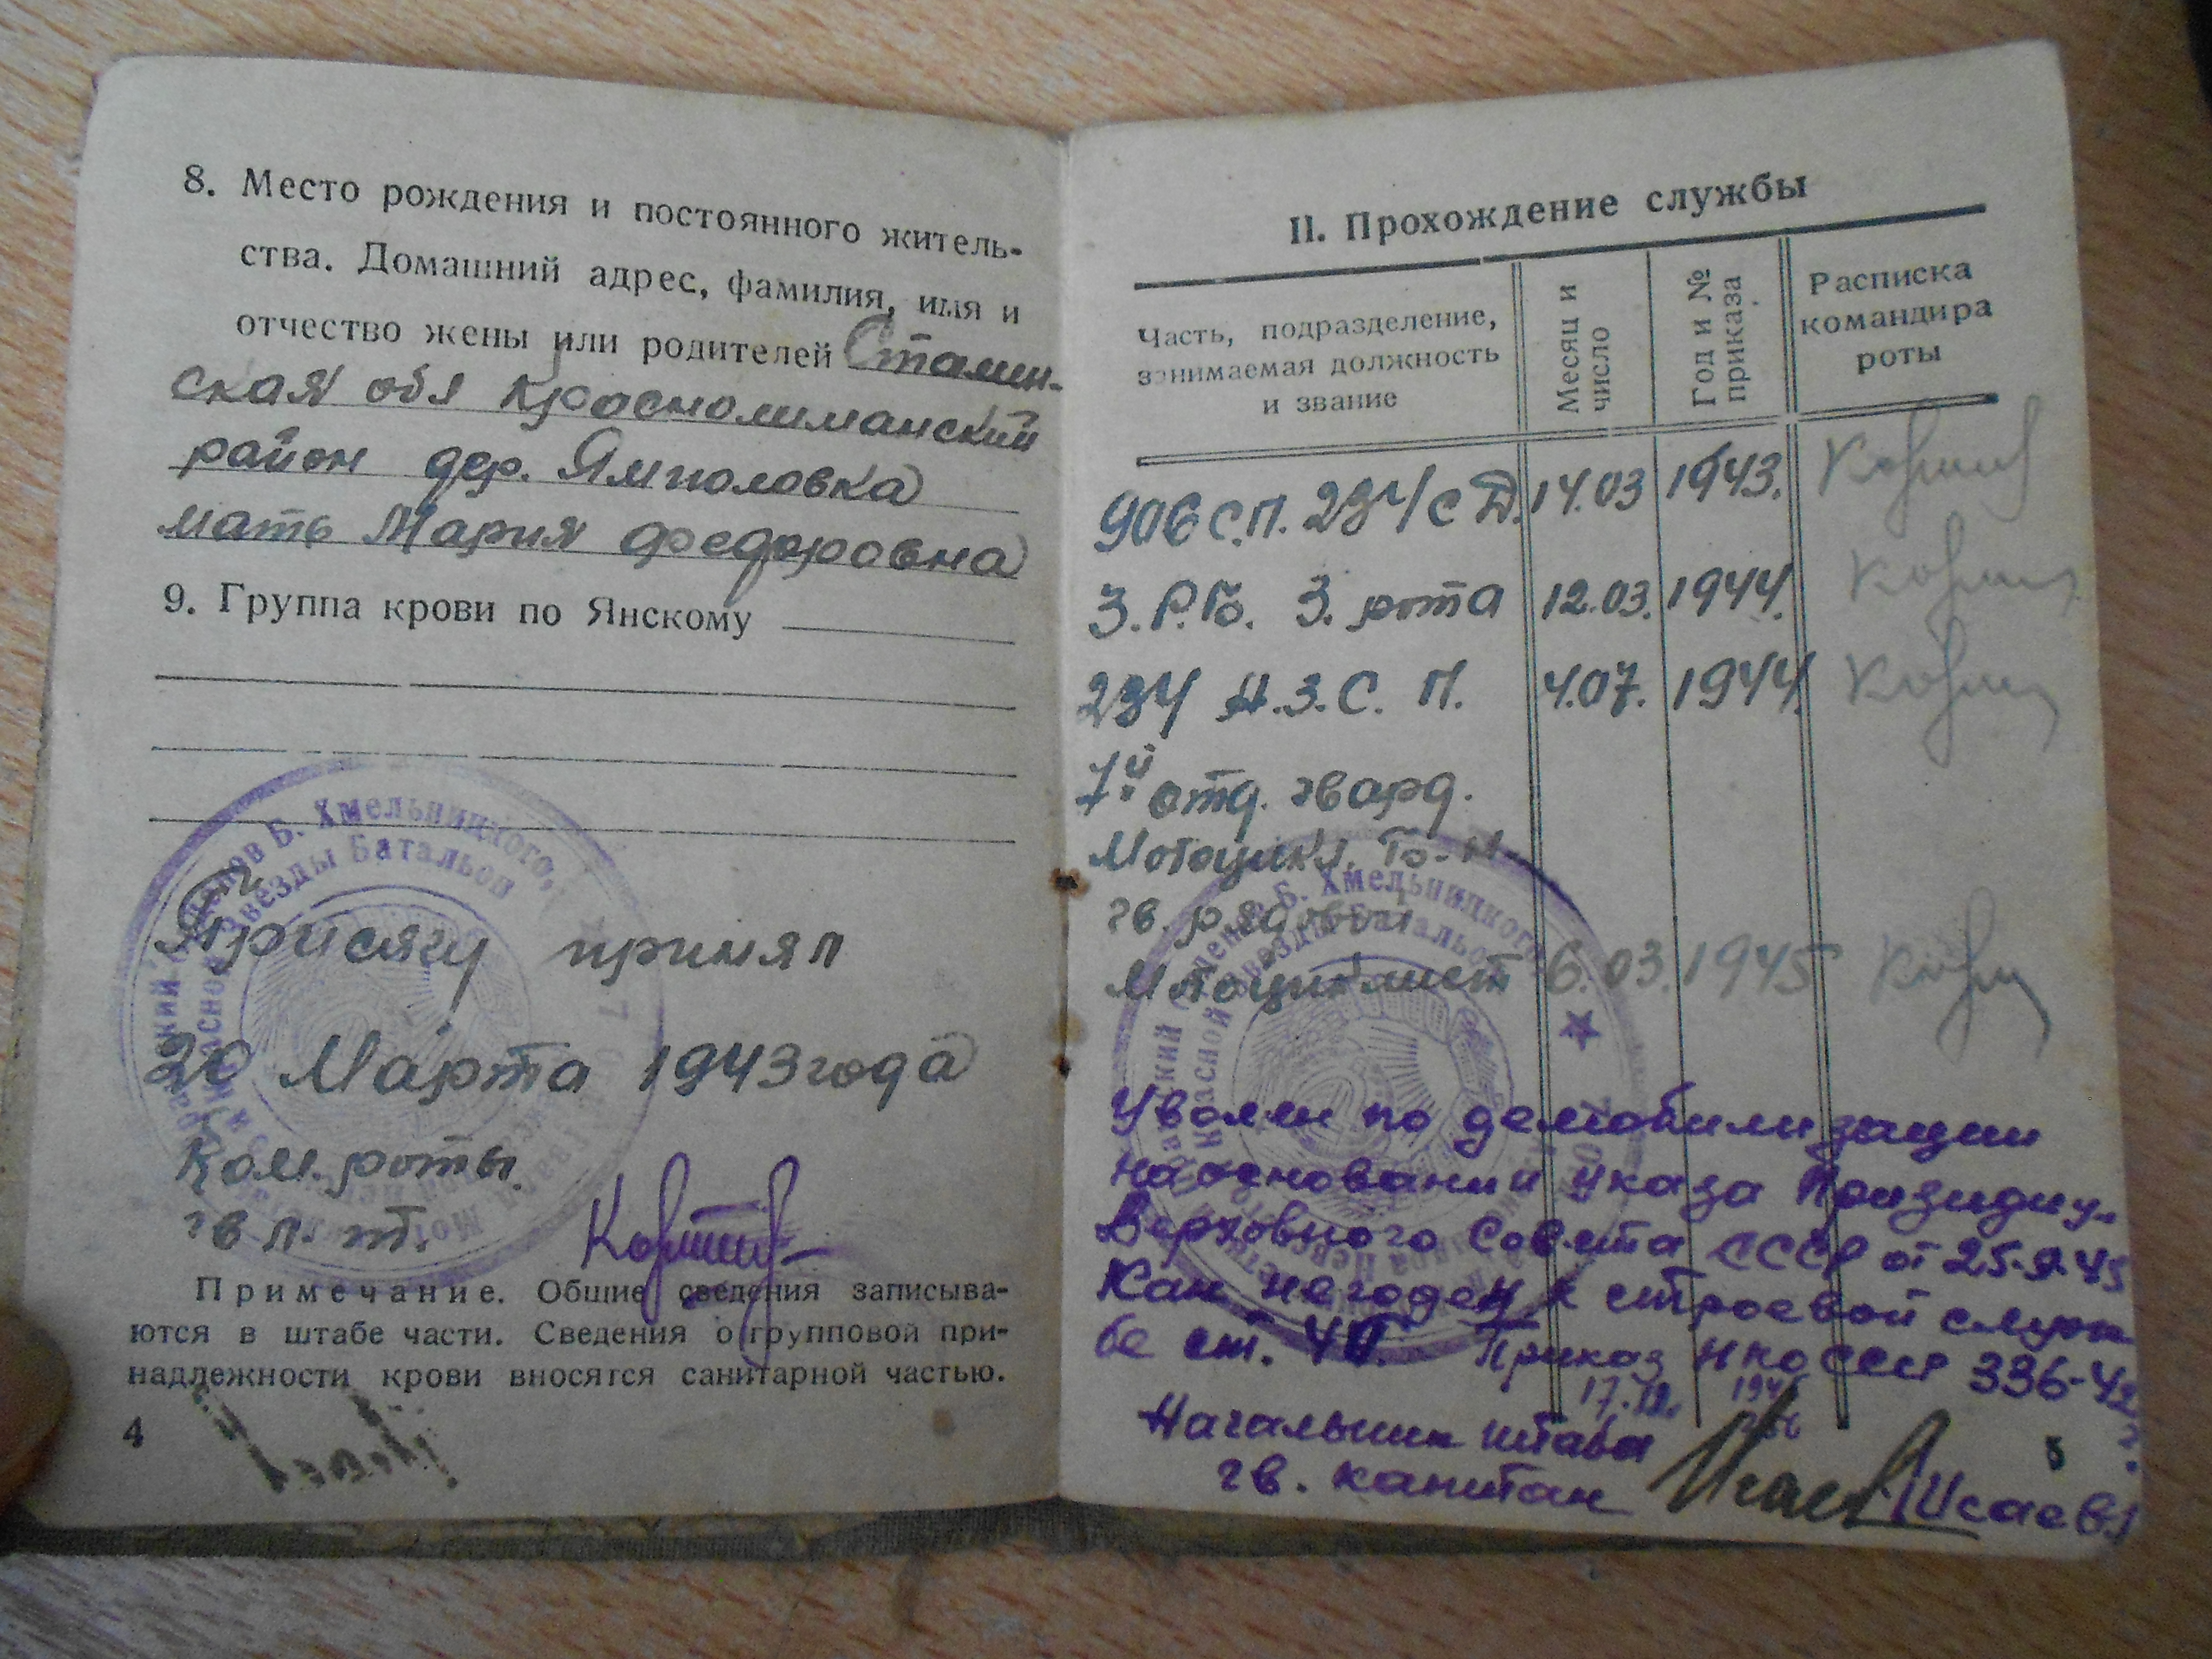 8. Место рождения и постоянного житель-
ства. Домашний адрес, фамилия, имя и
отчество жены или родителей Сталин-
ская обл Краснолиманский
район дер. Ямполовка
мать Мария Федоровна
9. Группа крови по Янскому
Присягу принял
20 Марта 1943 года
Ком. роты.
гв л-т.
Примечание. Общие сведения записыва-
ются в штабе части. Сведения о групповой при-
надлежности крови вносятся санитарной частью.
4
Б. Хмельницкого,
Звезды Батальон
II. Прохождение службы
Часть, подразделение,
занимаемая должность
и звание
Месяц и
число
Год и №
приказа
Расписка
командира
роты
906 С.П. 234/СД. 14.03 1943.
З.Р.Б. 3. рота 12.03. 1944.
234 А.З.С.П. 4.07. 1944.
7й отд. гвард.
Мотоцикл. Б-н
гв. рядовой
Мотоциклист 6.03. 1945
Б. Хмельницкого
Звезды Батальон
Уволен по демобилизации
на основании указа Призидиу.
Верховного Совета СССР от 25.9.45
Как негоден к строевой служ
бе ст. Приказ НКО СССР 336-42
17.12.
Начальник штаба
гв. капитан Исаев
5